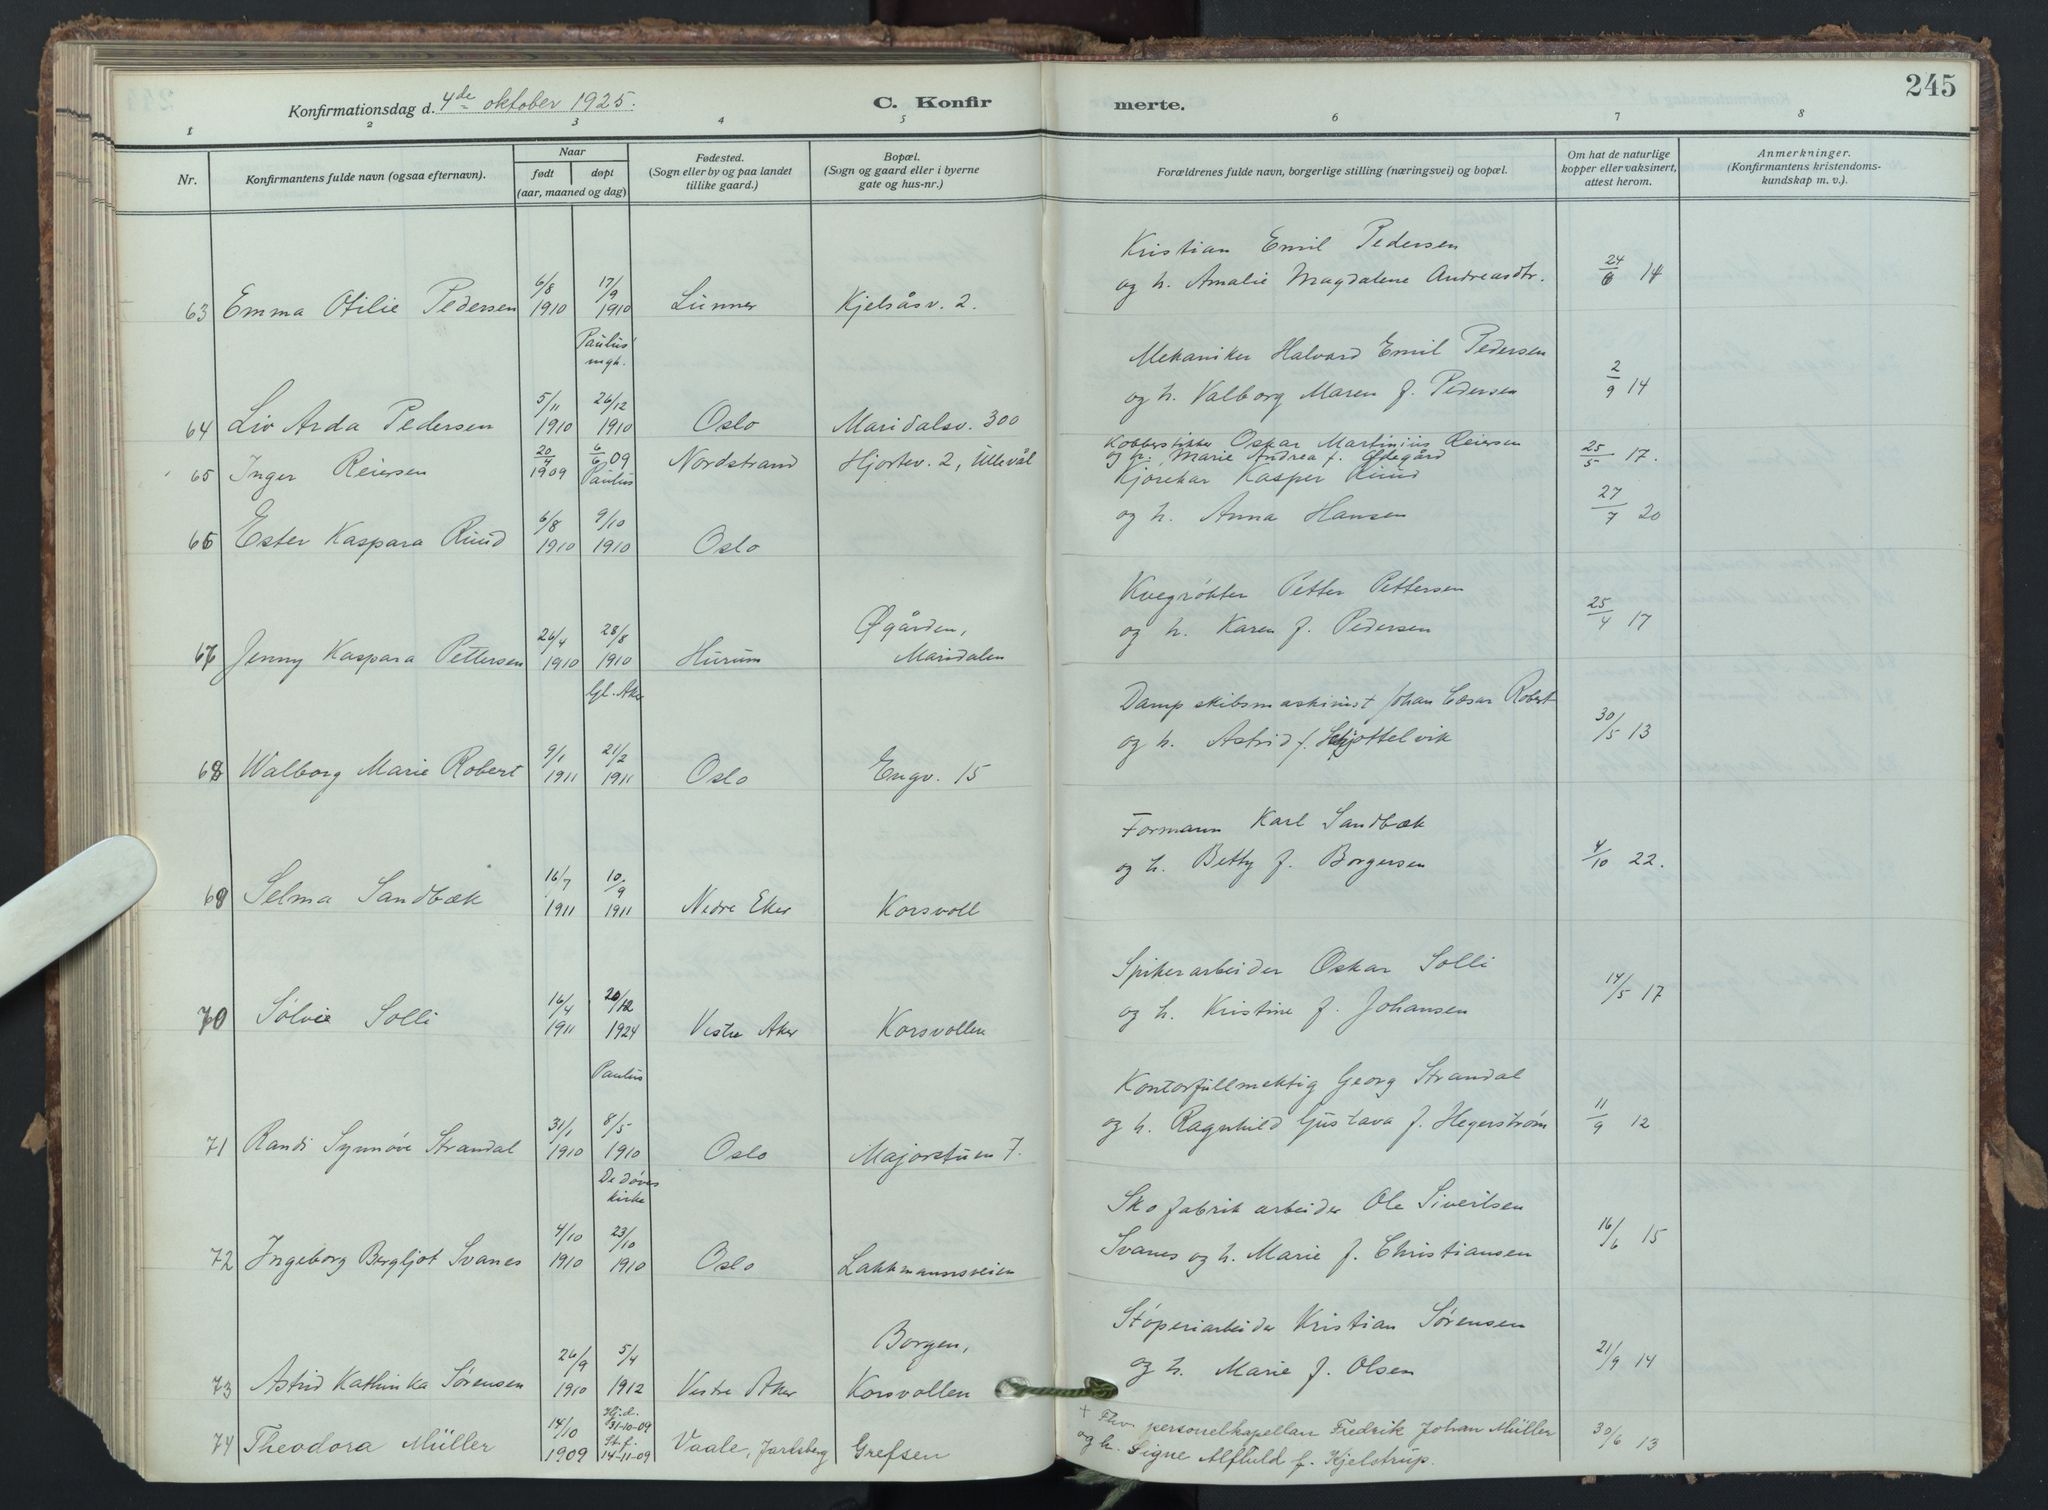 245
Konfirmationsdag d. 4de oktober 1925.
C. Konfirmerte.
1 2 3 4 5 6 7 8
Nr.
Konfirmantens fulde navn (ogsaa efternavn).
Naar
født døpt
(aar, maaned og dag)
Fødested.
(Sogn eller by og paa landet
tillike gaard.)
Bopæl.
(Sogn og gaard eller i byerne
gate og hus-nr.)
Forældrenes fulde navn, borgerlige stilling (næringsvei) og bopæl.
Om hat de naturlige
kopper eller vaksinert,
attest herom.
Anmerkninger.
(Konfirmantens kristendoms-
kundskap m. v.).
63 Emma Otilie Pedersen 6/8 1910 17/9 1910 Lunner Kjelsåsv. 2.
Kristian Emil Pedersen
og h. Amalie Magdalene Andreasdtr. 24/6 14
64 Liv Arda Pedersen 5/11 1910 Paulus' mgh. 26/12 1910 Oslo Maridalsv. 300
Mekaniker Halvard Emil Pedersen
og h. Valborg Maren f. Pedersen 2/9 14
65 Inger Reiersen 20/4 1909 6/6 09 Paulus Nordstrand Hjortev. 2, Ullevål
Kobberstikker Oskar Martinius Reiersen
og h. Marie Andrea f. Ødegård 25/5 17.
66 Ester Kaspara Ruud 6/8 1910 9/10 1910 Oslo
Kjørekar Kasper Ruud
og h. Anna Hansen 27/7 20
67 Jenny Kaspara Pettersen 26/4 1910 28/8 1910 Hurum Øgården, Maridalen
Kvegrøkter Petter Pettersen
og h. Karen f. Pedersen 25/4 17
68 Walborg Marie Robert 9/1 1911 Gl. Aker 21/2 1911 Oslo Engv. 15
Dampskibsmaskinist Johan Cæsar Robert
og h. Astrid f. Hjøttelvik 30/5 13
69 Selma Sandbæk 16/7 1911 10/9 1911 Nedre Eker Korsvoll
Formann Karl Sandbæk
og h. Betty f. Borgersen 4/10 22.
70 Sølvie Solli 16/4 1911 20/12 1924 Vestre Aker Korsvollen
Spikerarbeider Oskar Solli
og h. Kristine f. Johansen 14/5 17
71 Randi Synnøve Strandal 31/1 1910 Paulus 8/5 1910 Oslo Majorstuen 7.
Kontorfullmektig Georg Strandal
og h. Ragnhild Gustava f. Hegerstrøm 11/9 12
72 Ingeborg Bergljot Svanes 4/10 1910 De døves kirke 23/10 1910 Oslo Lakkmannsveien
Skofabrikarbeider Ole Sivertsen
Svanes og h. Marie f. Christiansen 16/6 15
73 Astrid Kathinka Sørensen 26/9 1910 5/4 1912 Vestre Aker Borgen, Korsvollen
Støperiarbeider Kristian Sørensen
og h. Marie f. Olsen 21/9 14
74 Theodora Müller 14/10 1909 Hj.d. 31-10-09 St.f. 14-11-09 Vaale, Jarlsberg Grefsen
+ Fhv. personelkapellan Fredrik Johan Müller
og h. Signe Alfhild f. Kjelstrup. 30/6 13